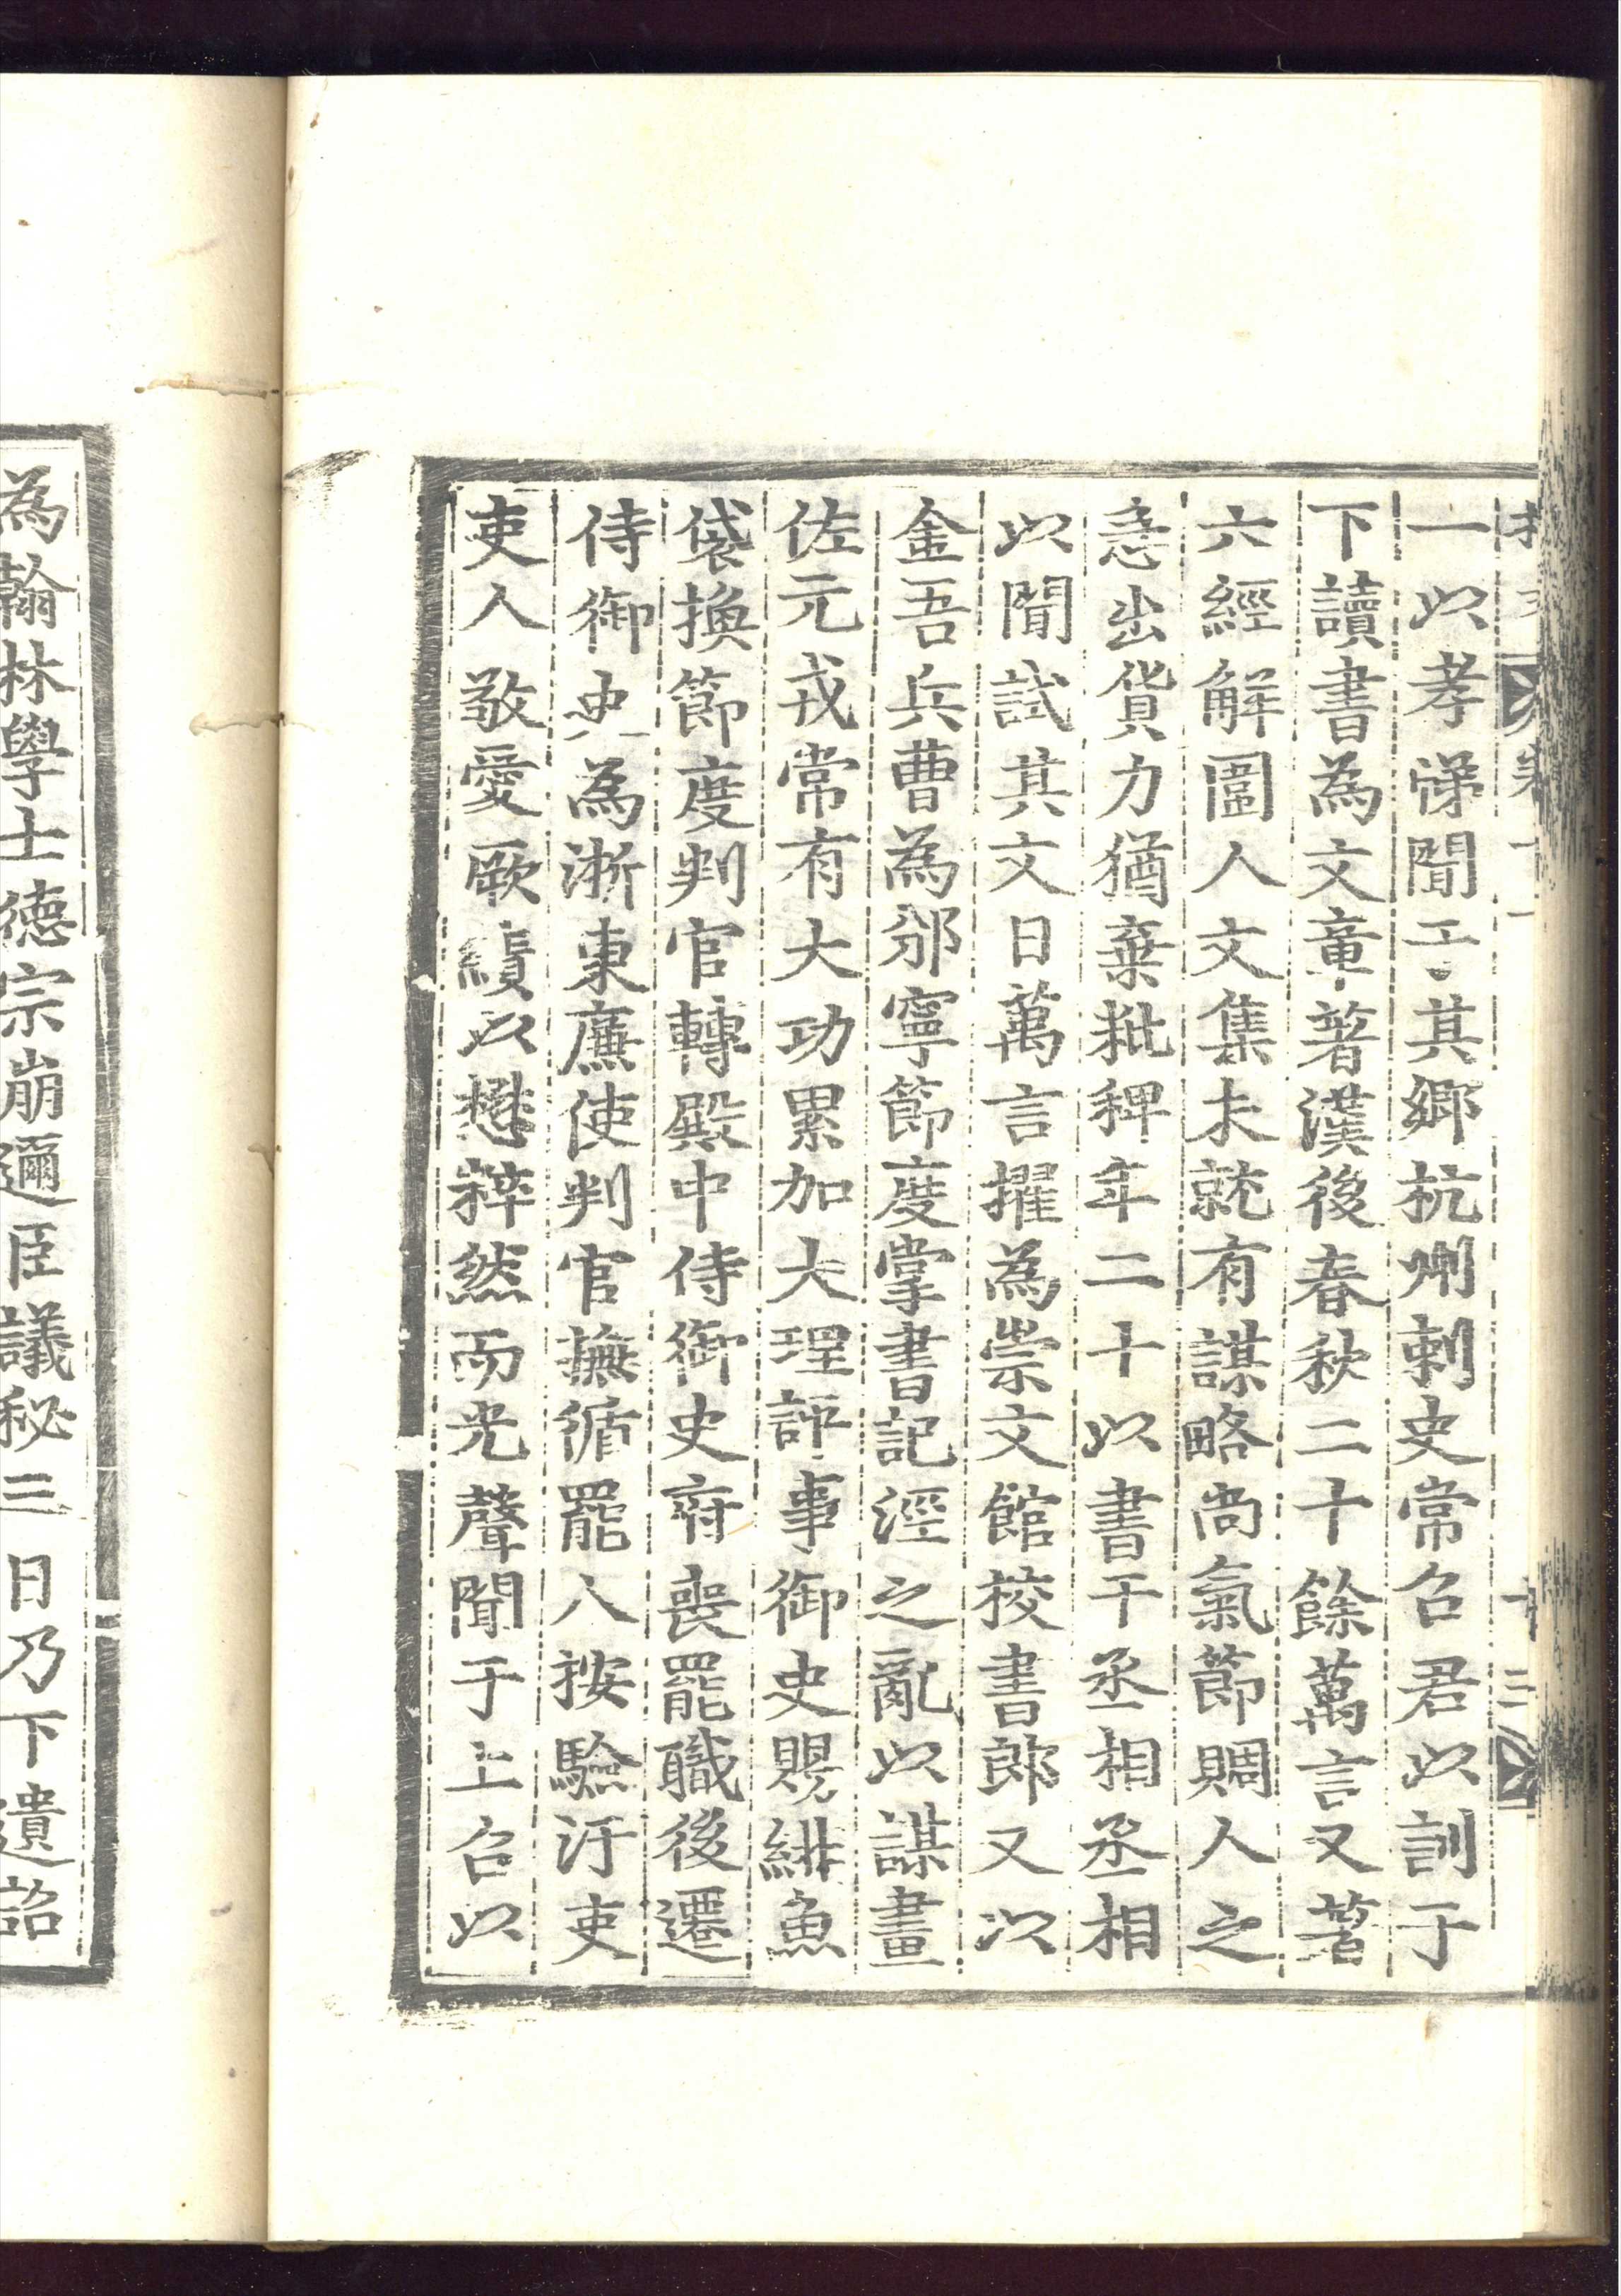 一以孝悌聞于其鄉杭州刺史常召君以訓于
下讀書為文章著漢後春秋二十餘萬言又著
六經解圍人文集未就有謀略尚氣節賙人之
急出貨力猶棄粃稗年二十以書干丞相丞相
以聞試其文日萬言擢為崇文館校書郎又以
金吾兵曹為邠寧節度掌書記涇之亂以謀畫
佐元戎常有大功累加大理評事御史賜緋魚
袋換節度判官轉殿中侍御史府喪罷職後遷
侍御史為浙東廉使判官撫循罷人按驗汙吏
吏人敬愛厥績以懋粹然而光聲聞于上召以
為翰林學士德宗崩邇臣議秘三日乃下遺詔